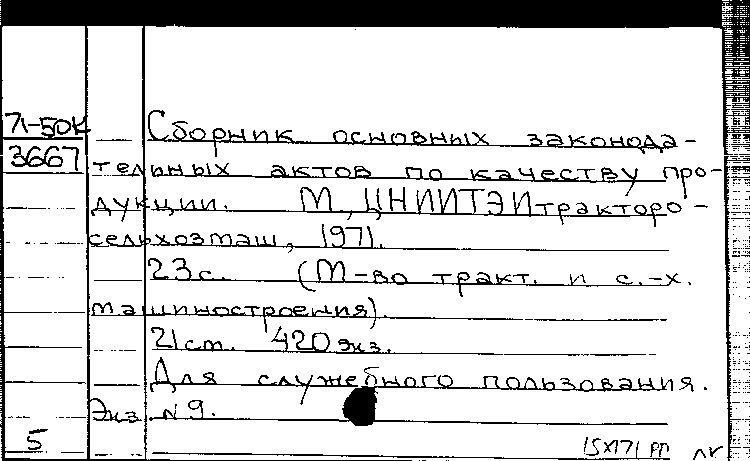 71-50к
3667
Сборник основных законода-
тельных актов по качеству про-
дукции. М, ЦНИИТЭИтракторо-
сельхозмаш, 1971.
23с. (М-во тракт. и с.-х.
машиностроения).
21см. 420 экз.
Для служебного пользования.
Экз. N 9.
5